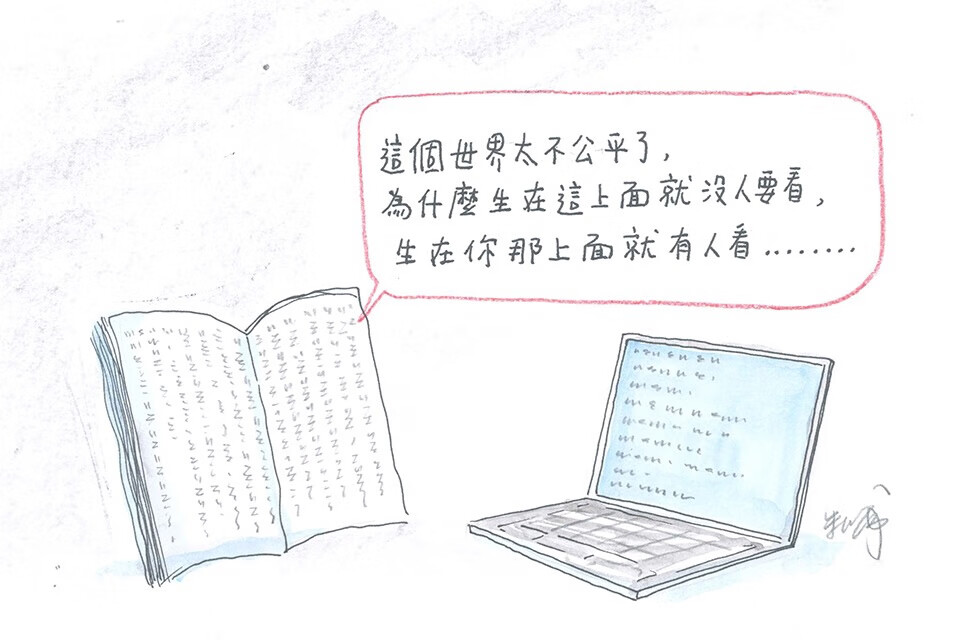 這個世界太不公平了，
為什麼生在這上面就沒人要看，
生在你那上面就有人看........